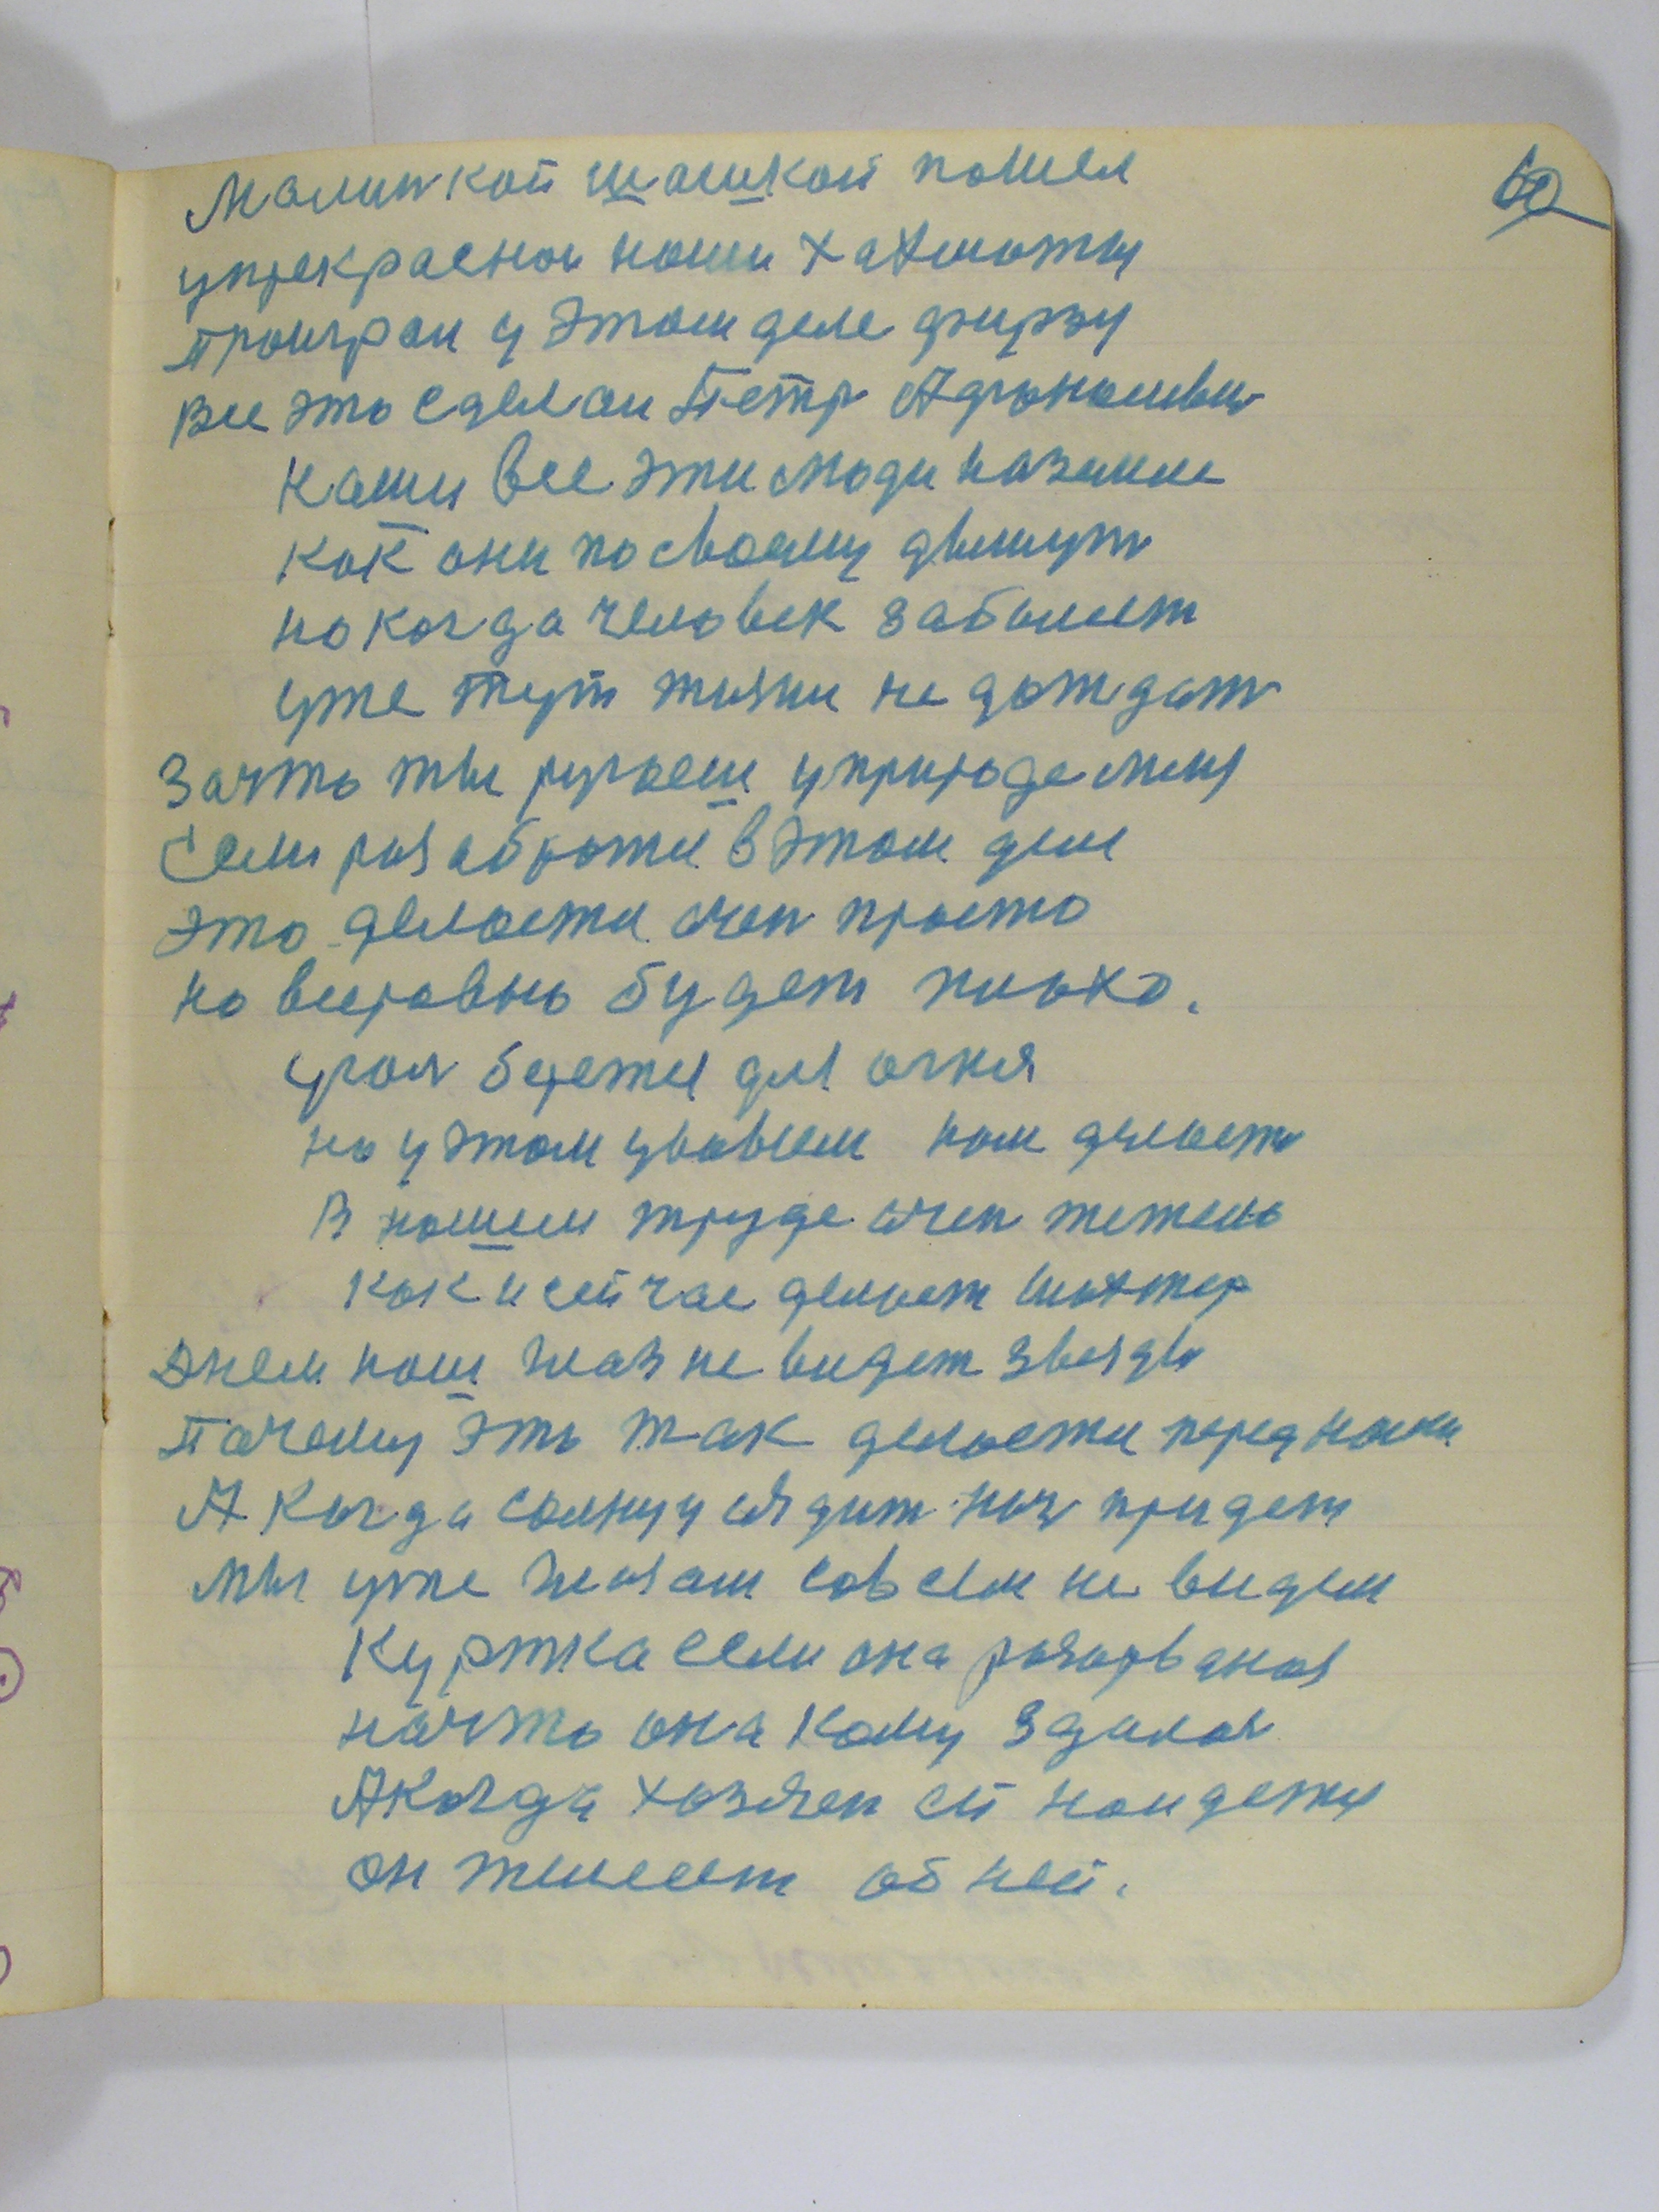 60
Малинкой шашкой пошел
упрекрасном наши
проиграл у этом деле
Все это сделал Петр
Наши все эти люди на земле
как они по своему движут
но когда человек заболеет
уже тут жизни не дождат
Зачто ты ругаеш уприроде меня
Если разабратце в этом деле
это делаетца очен просто
но всеравно будет плохо.
угол бережец для огня
но у этом нам делаеть
В нашем труде очен тежело
как и сейчас делает шахтер
Днем наш глаз не видет звезды
Пачему это так делаетца перед нами
А когда солнцу сядит ноч придет
мы уже глазам совсем не видем
Куртка если она разорваная
начто она кому здалая
А когда хозяен ей найдетця
он жилеет об ней.